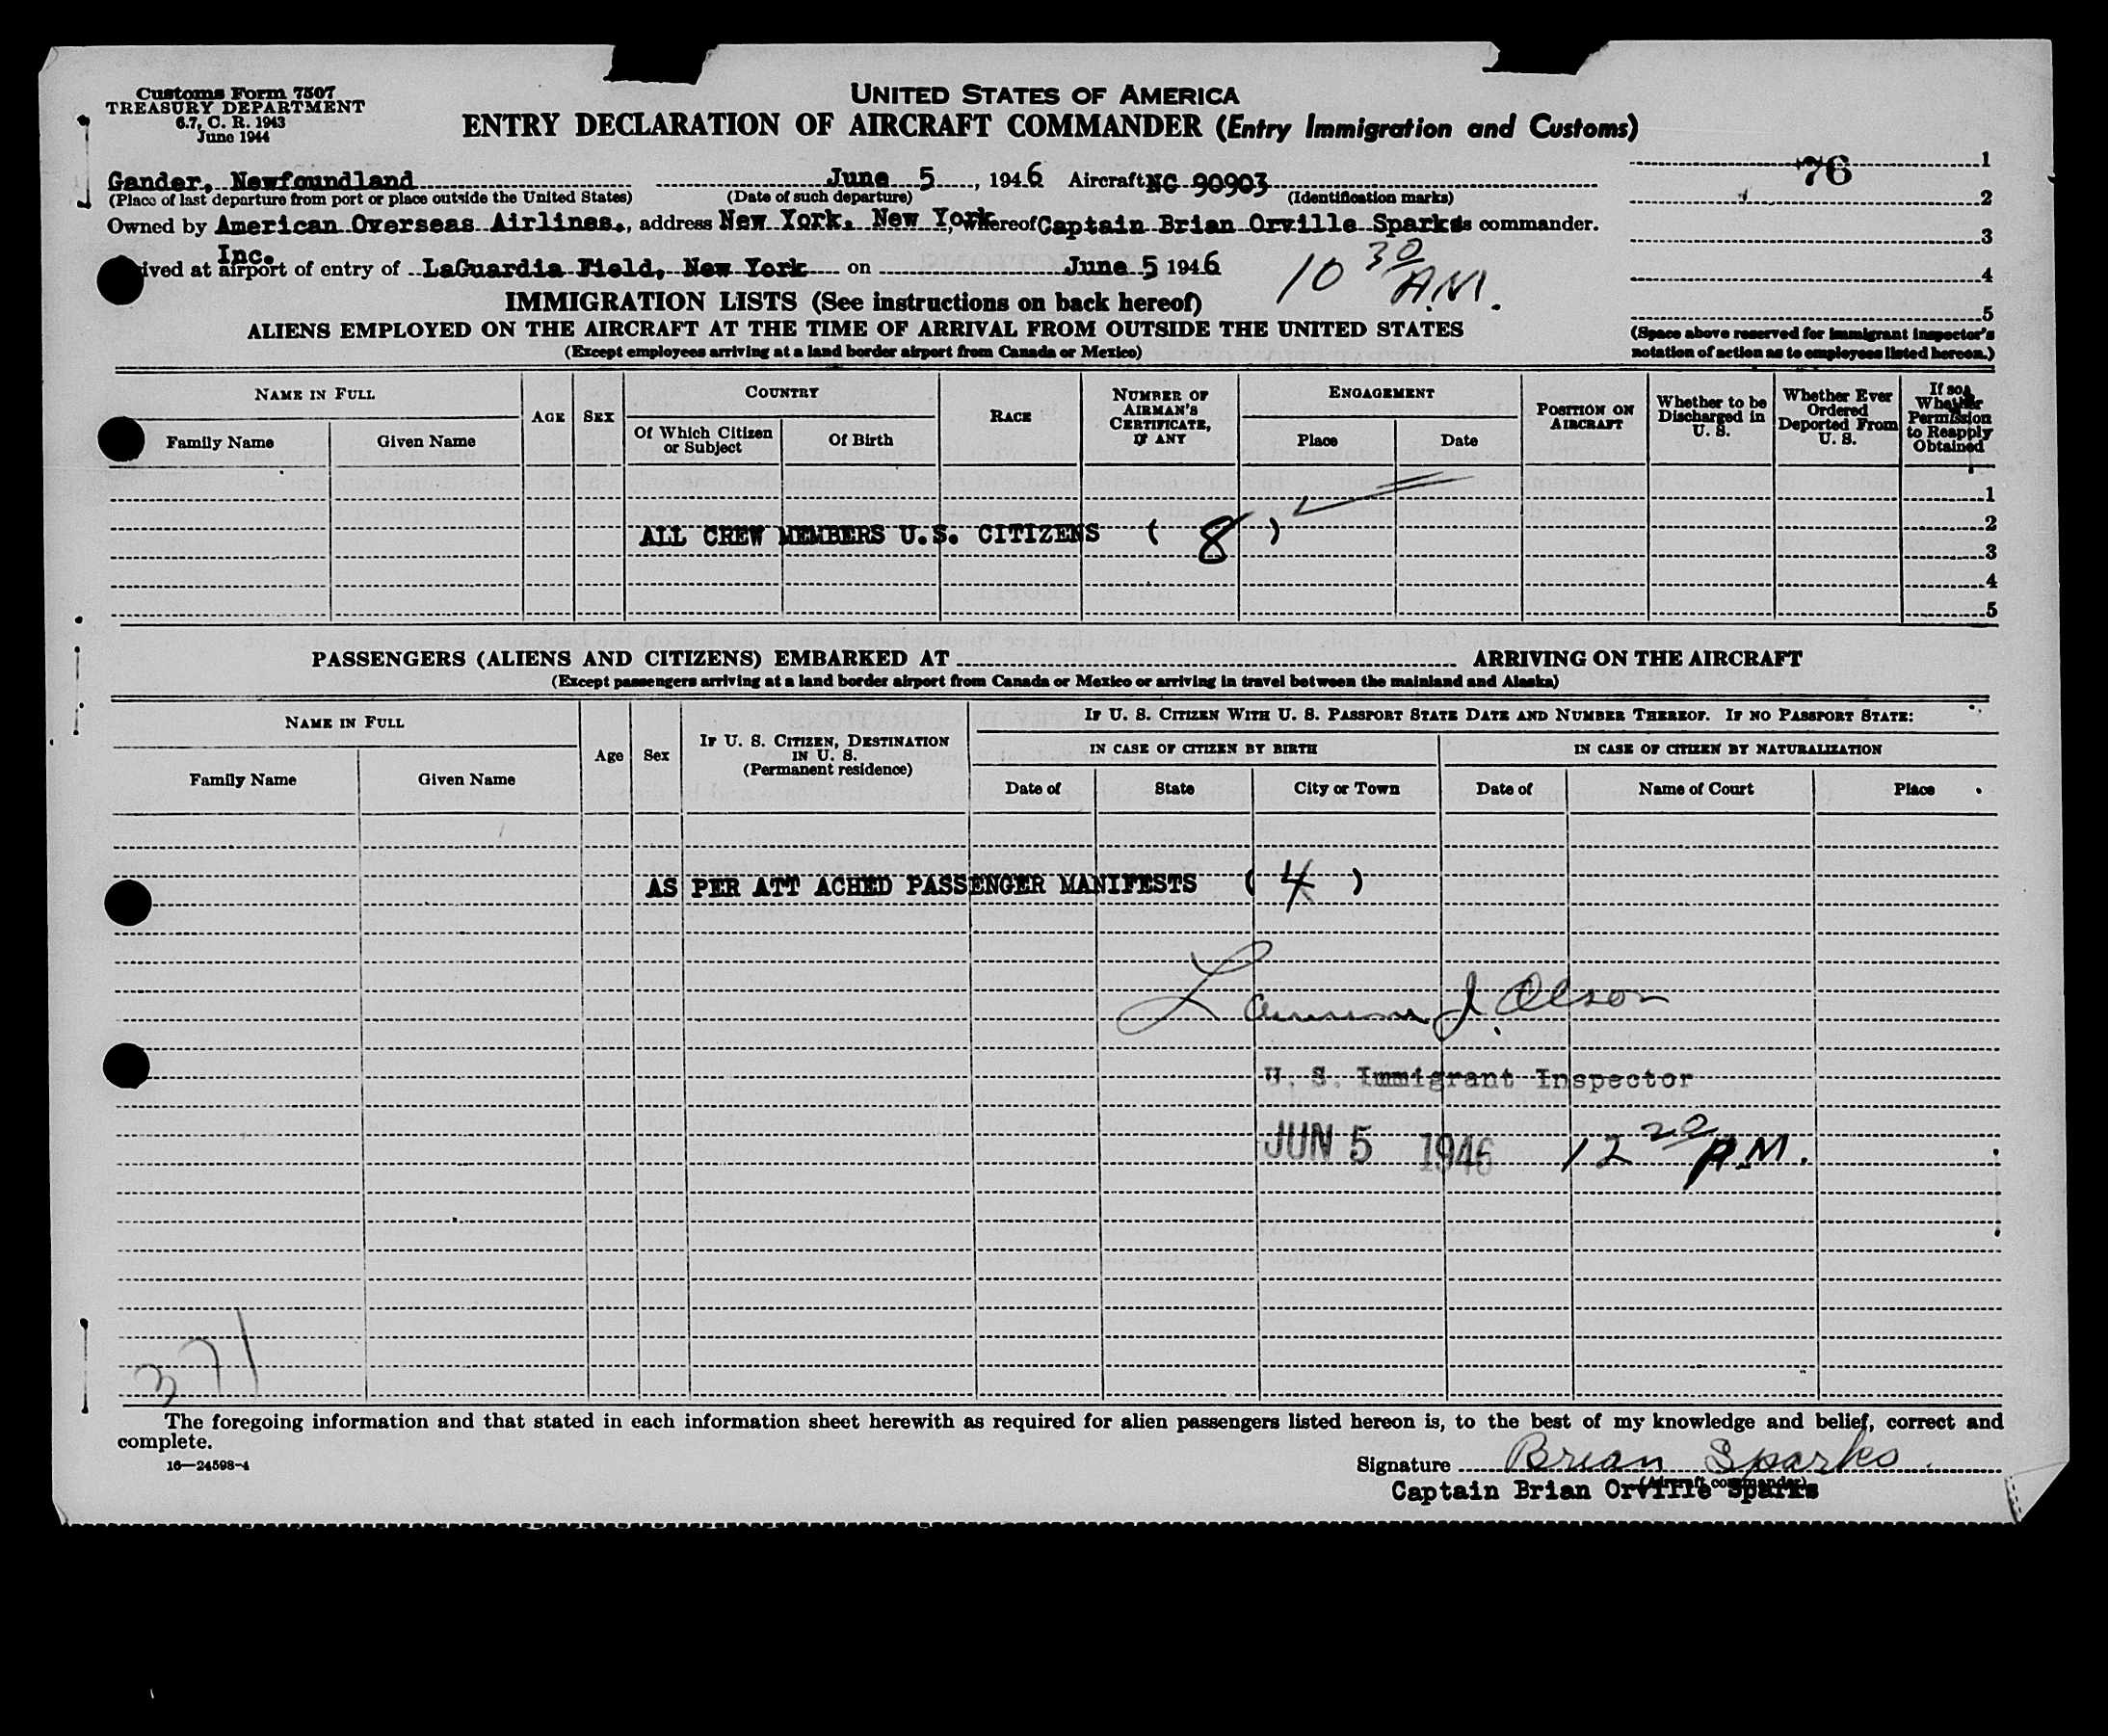 Customs Form 7507
TREASURY DEPARTMENT
6.7, C. R. 1943
June 1944
UNITED STATES OF AMERICA
ENTRY DECLARATION OF AIRCRAFT COMMANDER (Entry Immigration and Customs)
76
1
2
3
4
5
(Space above reserved for immigrant inspector's notation of action as to employees listed hereon.)
Gander, Newfoundland June 5, 1946 Aircraft NC 90903
(Place of last departure from port or place outside the United States) (Date of such departure) (Identification marks)
Owned by American Overseas Airlines, address New York, New York, whereof Captain Brian Orville Sparks is commander.
Inc.
ived at airport of entry of LaGuardia Field, New York on June 5 1946 10 30 A.M.
IMMIGRATION LISTS (See instructions on back hereof)
ALIENS EMPLOYED ON THE AIRCRAFT AT THE TIME OF ARRIVAL FROM OUTSIDE THE UNITED STATES
(Except employees arriving at a land border airport from Canada or Mexico)
NAME IN FULL
Family Name
Given Name
AGE
SEX
COUNTRY
Of Which Citizen or Subject
Of Birth
RACE
NUMBER OF AIRMAN'S CERTIFICATE, IF ANY
ENGAGEMENT
Place
Date
POSITION ON AIRCRAFT
Whether to be Discharged in U. S.
Whether Ever Ordered Deported From U. S.
If so, Whether Permission to Reapply Obtained
1
2
ALL CREW MEMBERS U.S. CITIZENS ( 8 )
3
4
5
PASSENGERS (ALIENS AND CITIZENS) EMBARKED AT ARRIVING ON THE AIRCRAFT
(Except passengers arriving at a land border airport from Canada or Mexico or arriving in travel between the mainland and Alaska)
NAME IN FULL
Family Name
Given Name
Age
Sex
IF U. S. CITIZEN, DESTINATION IN U. S.
(Permanent residence)
IF U. S. CITIZEN WITH U. S. PASSPORT STATE DATE AND NUMBER THEREOF. IF NO PASSPORT STATE:
IN CASE OF CITIZEN BY BIRTH
IN CASE OF CITIZEN BY NATURALIZATION
Date of
State
City or Town
Date of
Name of Court
Place
AS PER ATT ACHED PASSENGER MANIFESTS ( 4 )
J. Olson
U. S. Immigrant Inspector
JUN 5 1946 12 20 P.M.
371
The foregoing information and that stated in each information sheet herewith as required for alien passengers listed hereon is, to the best of my knowledge and belief, correct and
complete.
16—24598-4
Signature Brian Sparks
(Aircraft commander)
Captain Brian Orville Sparks